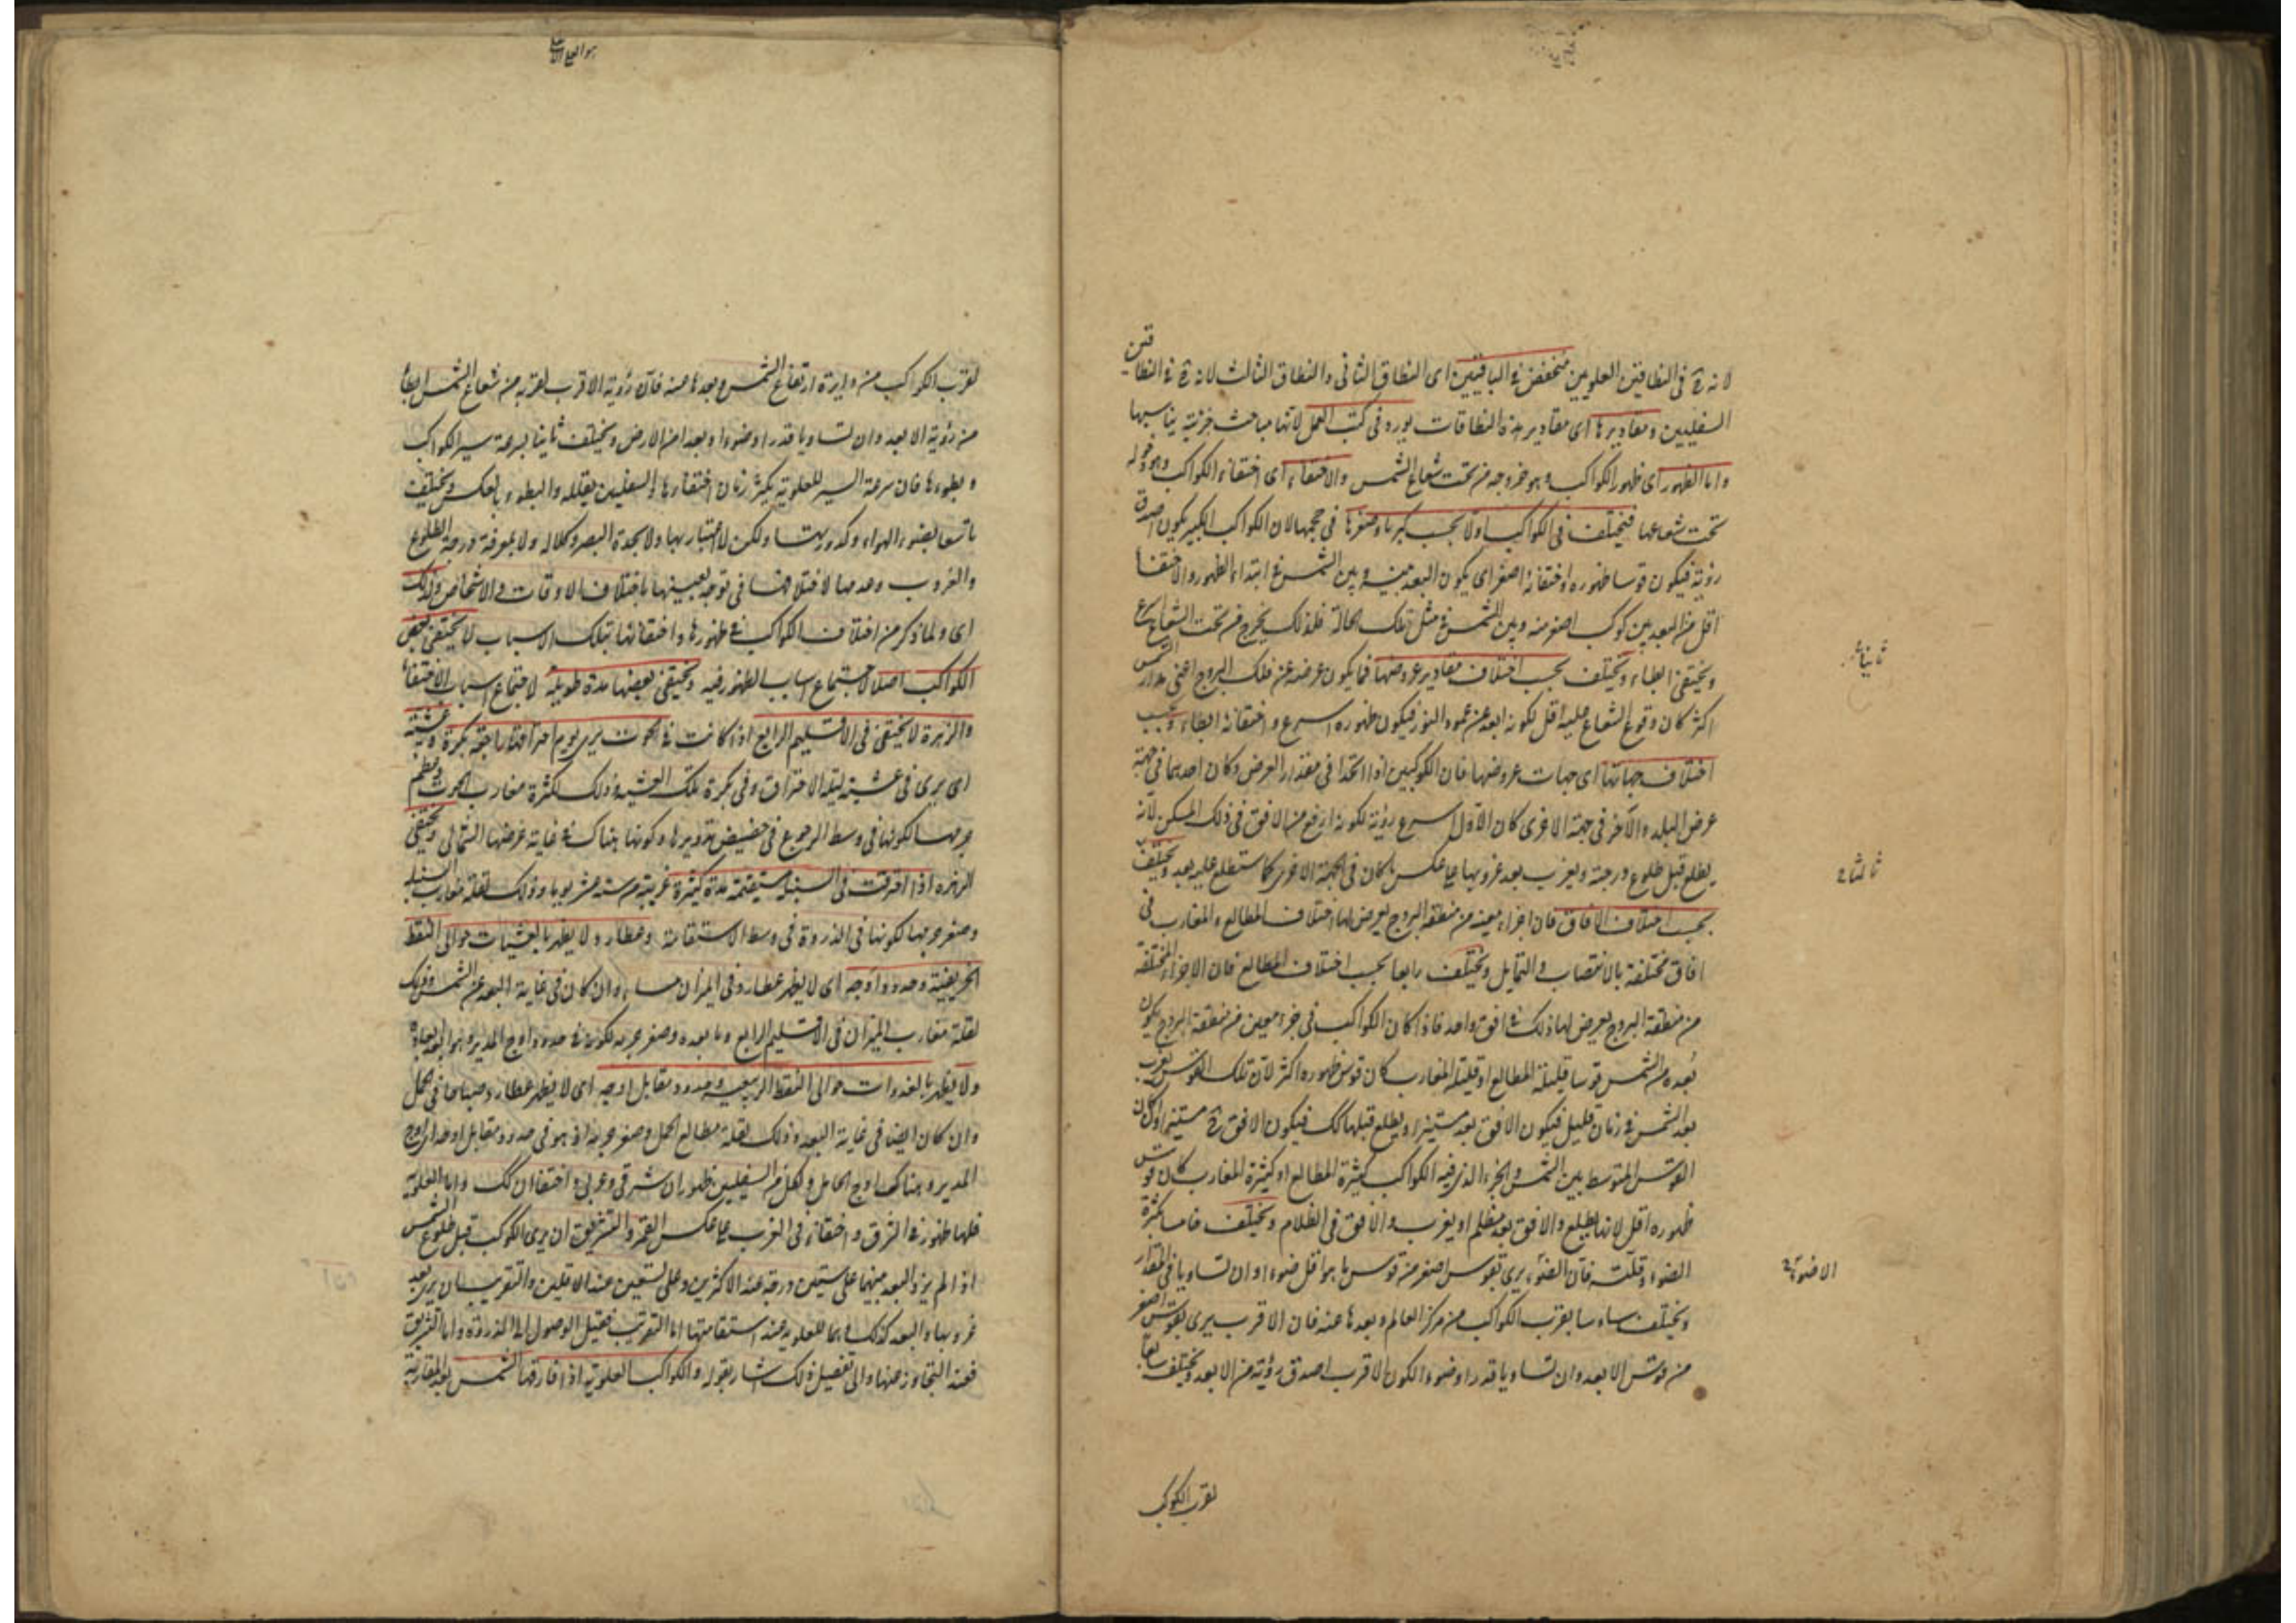 لانه ح فى النطاقين العلويين منخفض فى الباقيين اى النطاق الثانى والنطاق الثالث لانه ح فى النطاقين
السفليين ومقاديرها اى مقادير هذه النطاقات يورد فى كتب العمل لانها مباحث جزئية يناسبها
واما الظهور اى ظهور الكواكب وهو خروجه من تحت شعاع الشمس والاختفاء اى اختفاء الكواكب وهو دخوله
تحت شعاعها فيختلف فى الكواكب اولا بحسب كبرها وصغرها فى حجمها لان الكواكب الكبير يكون اصدق
رؤية فيكون قوسا ظهوره او اختفائه اصغر اى يكون البعد بينه وبين الشمس فى ابتداء الظهور والاختفاء
اقل من البعد بين كوكب اصغر منه وبين الشمس فى مثل تلك الحالة فلذلك يخرج من تحت الشعاع
ويختفى ابطاء ويختلف بحسب اختلاف مقادير عروضها فما يكون عرضه عن فلك البروج اعنى مدار الشمس
ثانيا
اكثر كان وقوع الشعاع عليه اقل لكونه ابعد عن عمود النور فيكون ظهوره اسرع واختفائه ابطاء وبحسب
اختلاف جهاتها اى جهات عروضها فان الكوكبين اذا اتحدا فى مقدار العرض وكان احدهما فى جهة
عرض البلد والآخر فى جهة الاخرى كان الاول اسرع رؤية لكونه ارفع من الافق فى ذلك المسكن لانه
يطلع قبل طلوع درجته ويغرب بعد غروبها على عكس ما كان فى الجهة الاخرى كما ستطلع عليه بعد ويختلف
ثالثا
بحسب اختلاف الافاق فان اجزاء بعينه من منطقة البروج يعرض لها اختلاف المطالع والمغارب فى
افاق مختلفة بالانتصاب والتمايل ويختلف رابعا بحسب اختلاف المطالع فان الاجزاء المختلفة
من منطقة البروج يعرض لها ذلك فى افق واحد فاذا كان الكواكب فى جزء معين من منطقة البروج يكون
بعده من الشمس قوسا قليلة المطالع او قليلة المغارب كان قوس ظهوره اكثر لان تلك القوس يغرب
بعد الشمس فى زمان قليل فيكون الافق بعد مستنيرا ويطلع قبلها كك فيكون الافق ح مستنيرا وان كان
القوس المتوسط بين الشمس والجزء الذى فيه الكواكب كثيرة المطالع او كثيرة المغارب كان قوس
ظهوره اقل لانها يطلع والافق بعد مظلم او يغرب والافق فى الظلام ويختلف خامسا بكثرة
الضوء وقلته فان الضوء يرى بقوس اصغر من قوس ما هو اقل ضوءا وان تساويا فى المقدار
ويختلف سادسا بقرب الكواكب من مركز العالم وبعدها عنه فان الاقرب يرى بقوس اصغر
من قوس الابعد وان تساويا قدرا وضوءا لكون الاقرب اصدق رؤية من الابعد ويختلف سابعا
لقرب الكواكب
لقرب الكواكب من دايرة ارتفاع الشمس وبعدها عنه فان رؤية الاقرب لقربه من شعاع الشمس ابطأ
من رؤية الابعد وان تساويا قدرا وضوءا وبعدا من الارض ويختلف ثامنا بسرعة سير الكواكب
وبطوءها فان سرعة السير للعلوية يكثر زمان اختفائها وللسفليين يقلله والبطوء بالعكس ويختلف
تاسعا بضوء الهواء وكدورتها ولكن لا اعتبار بها ولا بحدة البصر وكلاله ولا بمعرفة درجة الطلوع
والغروب وعدمها لاختلافها فى توجه بعينها باختلاف الاوقات والاشخاص ولذلك
اى ولما ذكر من اختلاف الكواكب فى ظهورها واختفائها بتلك الاسباب لا يختفى بعض
الكواكب اصلا لاجتماع اسباب الظهور فيه ويختفى بعضها مدة طويلة لاجتماع اسباب الاختفاء
والزهرة لا يختفى فى الاقليم الرابع اذا كانت فى الحوت يرى يوم احتراقها راجعة بكرة وعشية
اى يرى فى عشية ليلة الاحتراق وفى بكرة تلك العشية وذلك لكثرة مغارب الحوت وعظم
جرمها لكونها فى وسط الرجوع فى حضيض تدويرها وكونها هناك فى غاية عرضها الشمالى ويختفى
الزهرة اذا احترقت فى السنبلة مستقيمة مدة كثيرة قريبة من ستة عشر يوما وذلك لقلة مغارب السنبلة
وصغر جرمها لكونها فى الذروة فى وسط الاستقامة وعطارد لا يظهر بالعشيات حوالى النقطة
الخريفية وحدود اوجه اى لا يظهر عطارد فى الميزان مساء وان كان فى غاية البعد عن الشمس وذلك
لقلة مغارب الميزان فى الاقليم الرابع وما بعده وصغر جرمه لكونه فى حدود اوج المدير وهو ابعد ابعاده
ولا يظهر بالغدوات حوالى النقطة الربيعية وحدود مقابل اوجه اى لا يظهر عطارد صباحا فى الحمل
وان كان ايضا فى غاية البعد وذلك لقلة مطالع الحمل وصغر جرمه اذ هو فى حدود مقابل اوجه اى اوج
المدير وهناك اوج الحامل ولكل من السفليين ظهوران شرقى وغربى واختفاان كك واما العلوية
فلها ظهور فى الشرق واختفاء فى الغرب على عكس القمر والتشريق ان يرى الكوكب قبل طلوع الشمس
اذا لم يزد البعد بينهما على ستين درجة عند الاكثرين وعلى تسعين عند الاقلين والتغريب ان يرى بعد
غروبها والبعد كذلك وهما للعلوية عند استقامتها اما التغريب فقبيل الوصول الى الذروة واما التشريق
فعند التجاوز عنها والى تفصيل ذلك اشار بقوله والكواكب العلوية اذا فارقها الشمس بعد المقارنة